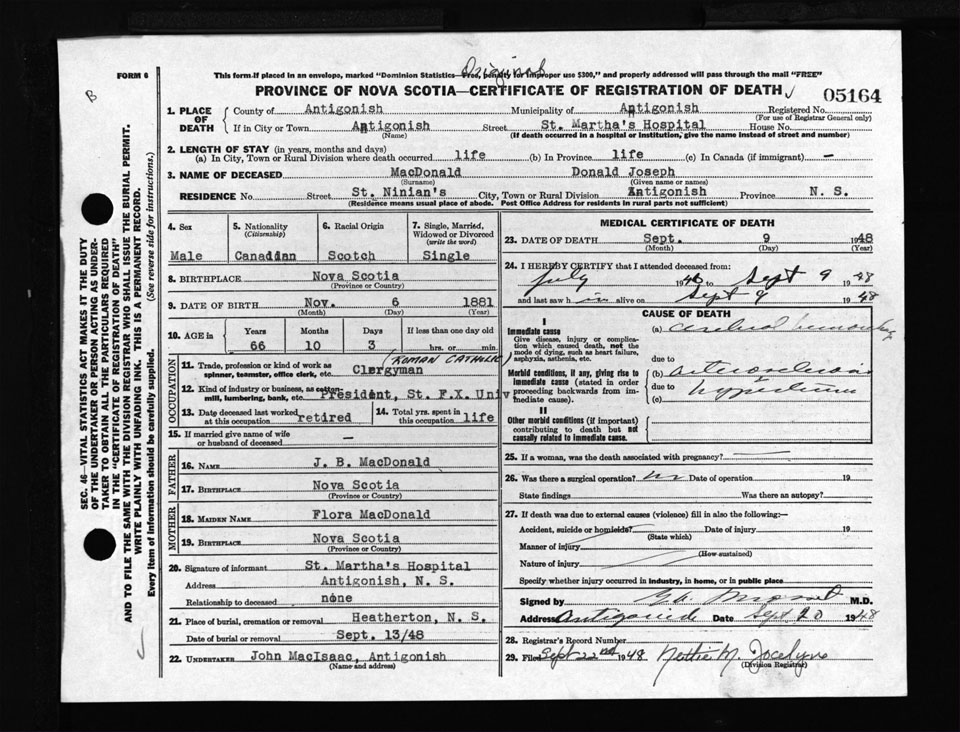 Original
FORM 6
B
This form if placed in an envelope, marked "Dominion Statistics—Free, penalty for improper use $300," and properly addressed will pass through the mail "FREE"
PROVINCE OF NOVA SCOTIA—CERTIFICATE OF REGISTRATION OF DEATH
05164
1. PLACE OF DEATH County of Antigonish Municipality of Antigonish Registered No.
(For use of Registrar General only)
If in City or Town Antigonish Street St. Martha's Hospital House No.
(Name) (If death occurred in a hospital or institution, give the name instead of street and number)
2. LENGTH OF STAY (in years, months and days)
(a) In City, Town or Rural Division where death occurred life (b) In Province life (c) In Canada (if immigrant) —
3. NAME OF DECEASED MacDonald Donald Joseph
(Surname) (Given name or names)
RESIDENCE No. Street St. Ninian's City, Town or Rural Division Antigonish Province N. S.
(Residence means usual place of abode. Post Office Address for residents in rural parts not sufficient)
4. Sex 5. Nationality (Citizenship) 6. Racial Origin 7. Single, Married, Widowed or Divorced (write the word)
Male Canadian Scotch Single
8. BIRTHPLACE Nova Scotia
(Province or Country)
9. DATE OF BIRTH Nov. 6 1881
(Month) (Day) (Year)
10. AGE in Years Months Days If less than one day old
66 10 3 hrs. or min.
OCCUPATION
(ROMAN CATHOLIC)
11. Trade, profession or kind of work as spinner, teamster, office clerk, etc. Clergyman
12. Kind of industry or business, as cotton-mill, lumbering, bank, etc. President, St. F.X. Univ
13. Date deceased last worked at this occupation retired 14. Total yrs. spent in this occupation life
15. If married give name of wife or husband of deceased —
FATHER
16. NAME J. B. MacDonald
17. BIRTHPLACE Nova Scotia
(Province or Country)
MOTHER
18. MAIDEN NAME Flora MacDonald
19. BIRTHPLACE Nova Scotia
(Province or Country)
20. Signature of informant St. Martha's Hospital
Address Antigonish, N. S.
Relationship to deceased none
21. Place of burial, cremation or removal Heatherton, N. S.
Date of burial or removal Sept. 13/48
22. UNDERTAKER John MacIsaac, Antigonish
(Name and address)
MEDICAL CERTIFICATE OF DEATH
23. DATE OF DEATH Sept. 9 1948
(Month) (Day) (Year)
24. I HEREBY CERTIFY that I attended deceased from:
July 1946 to Sept 9 1948
and last saw him alive on Sept 9 1948
CAUSE OF DEATH
I
Immediate cause
Give disease, injury or complication which caused death, not the mode of dying, such as heart failure, asphyxia, asthenia, etc.
(a) Cerebral hemorrhage
due to
Morbid conditions, if any, giving rise to immediate cause (stated in order proceeding backwards from immediate cause).
(b) arteriosclerosis
due to
(c) hypertension
II
Other morbid conditions (if important) contributing to death but not causally related to immediate cause.
25. If a woman, was the death associated with pregnancy? —
26. Was there a surgical operation? no Date of operation 19
State findings Was there an autopsy?
27. If death was due to external causes (violence) fill in also the following:—
Accident, suicide or homicide? Date of injury 19
(State which)
Manner of injury
(How sustained)
Nature of injury
Specify whether injury occurred in industry, in home, or in public place
Signed by M.D.
Address Antigonish Date Sept 20 1948
28. Registrar's Record Number
29. Filed Sept 22nd 1948 Nettie M. Jocelyne
(Division Registrar)
SEC. 46—VITAL STATISTICS ACT MAKES IT THE DUTY
OF THE UNDERTAKER OR PERSON ACTING AS UNDER-
TAKER TO OBTAIN ALL THE PARTICULARS REQUIRED
IN THE "CERTIFICATE OF REGISTRATION OF DEATH"
AND TO FILE THE SAME WITH THE DIVISION REGISTRAR WHO SHALL ISSUE THE BURIAL PERMIT.
WRITE PLAINLY WITH UNFADING INK. THIS IS A PERMANENT RECORD.
Every item of information should be carefully supplied. (See reverse side for instructions.)